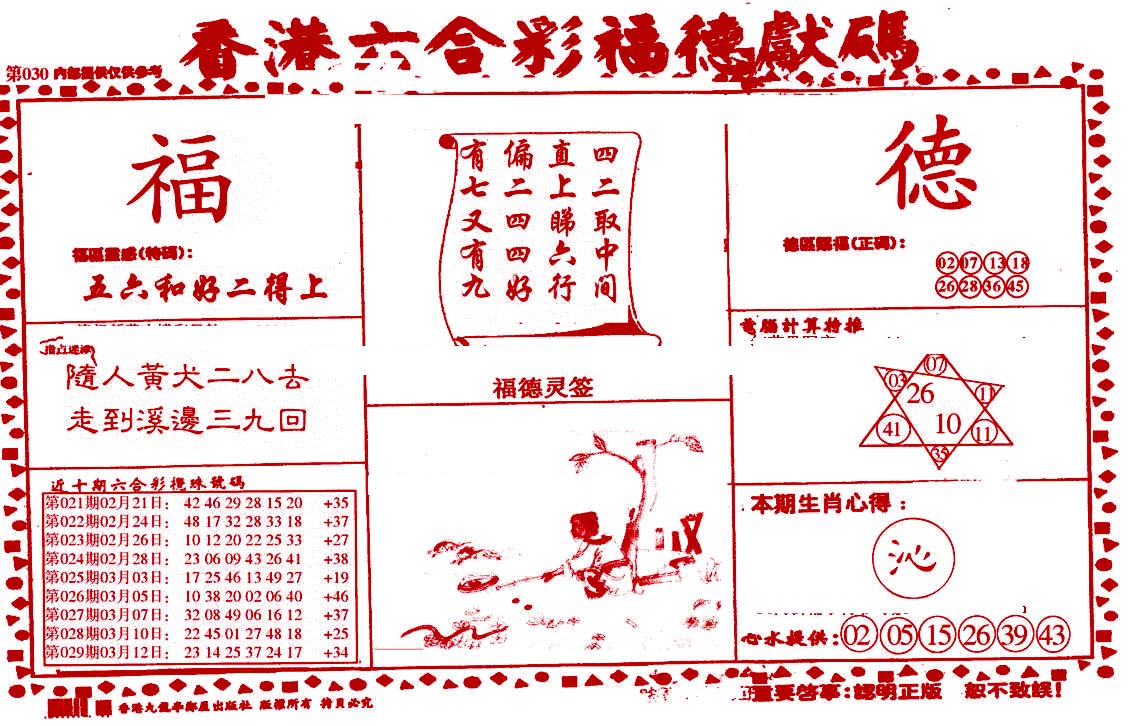 香港六合彩福德獻碼
第030 内部提供仅供参考
福
福區靈感(特碼):
五六和好二得上
有七又有九
偏二四四好
直上睇六行
四二取中间
德
德區賜福(正碼):
02 07 13 18
26 28 36 45
指点迷津
隨人黃犬二八去
走到溪邊三九回
電腦計算特推
07
03 26 11
41 10 11
35
福德灵签
近十期六合彩攪珠號碼
第021期02月21日: 42 46 29 28 15 20 +35
第022期02月24日: 48 17 32 28 33 18 +37
第023期02月26日: 10 12 20 22 25 33 +27
第024期02月28日: 23 06 09 43 26 41 +38
第025期03月03日: 17 25 46 13 49 27 +19
第026期03月05日: 10 38 20 02 06 40 +46
第027期03月07日: 32 08 49 06 16 12 +37
第028期03月10日: 22 45 01 27 48 18 +25
第029期03月12日: 23 14 25 37 24 17 +34
本期生肖心得:
沁
心水提供: 02 05 15 26 39 43
香港九龍半島屋出版社 版權所有 拷貝必究
重要啓事:認明正版 恕不致誤!